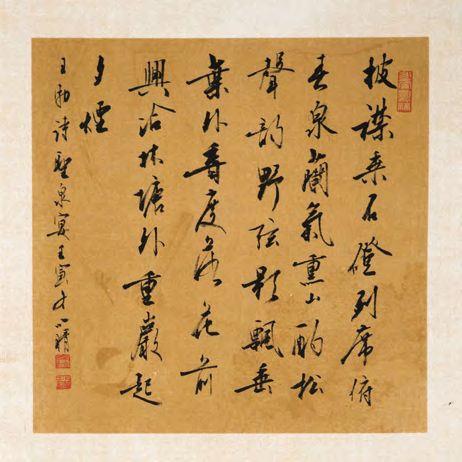 披襟乘石磴列席俯
春泉蘭氣熏山酌松
聲韵野弦影飄垂
葉外香度落花前
興洽林塘外重巖起
夕煙
王勃詩聖泉宴壬寅